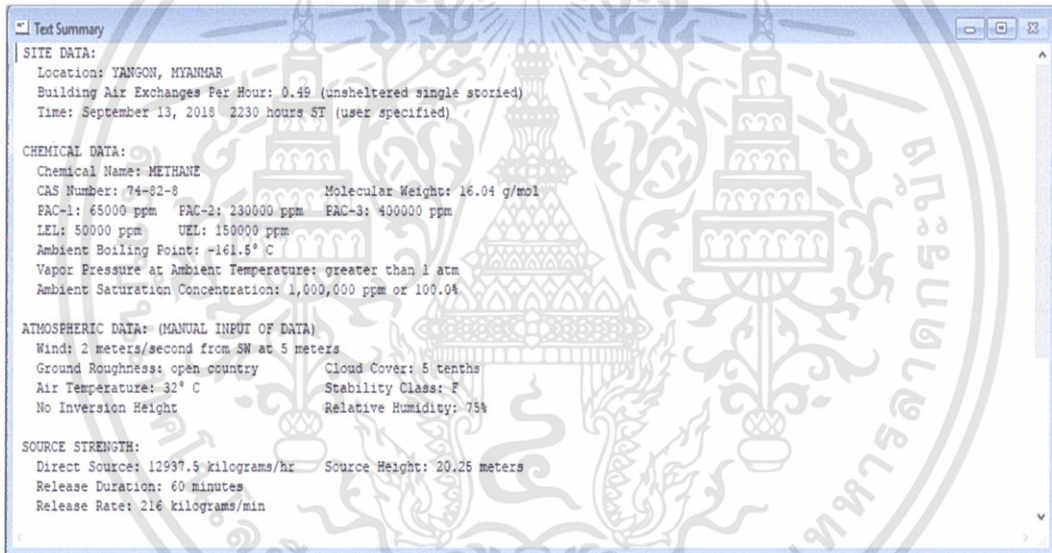 Text Summary
SITE DATA:
Location: YANGON, MYANMAR
Building Air Exchanges Per Hour: 0.49 (unsheltered single storied)
Time: September 13, 2018 2230 hours ST (user specified)
CHEMICAL DATA:
Chemical Name: METHANE
CAS Number: 74-82-8 Molecular Weight: 16.04 g/mol
PAC-1: 65000 ppm PAC-2: 230000 ppm PAC-3: 400000 ppm
LEL: 50000 ppm UEL: 150000 ppm
Ambient Boiling Point: -161.5° C
Vapor Pressure at Ambient Temperature: greater than 1 atm
Ambient Saturation Concentration: 1,000,000 ppm or 100.0%
ATMOSPHERIC DATA: (MANUAL INPUT OF DATA)
Wind: 2 meters/second from SW at 5 meters
Ground Roughness: open country Cloud Cover: 5 tenths
Air Temperature: 32° C Stability Class: F
No Inversion Height Relative Humidity: 75%
SOURCE STRENGTH:
Direct Source: 12937.5 kilograms/hr Source Height: 20.25 meters
Release Duration: 60 minutes
Release Rate: 216 kilograms/min